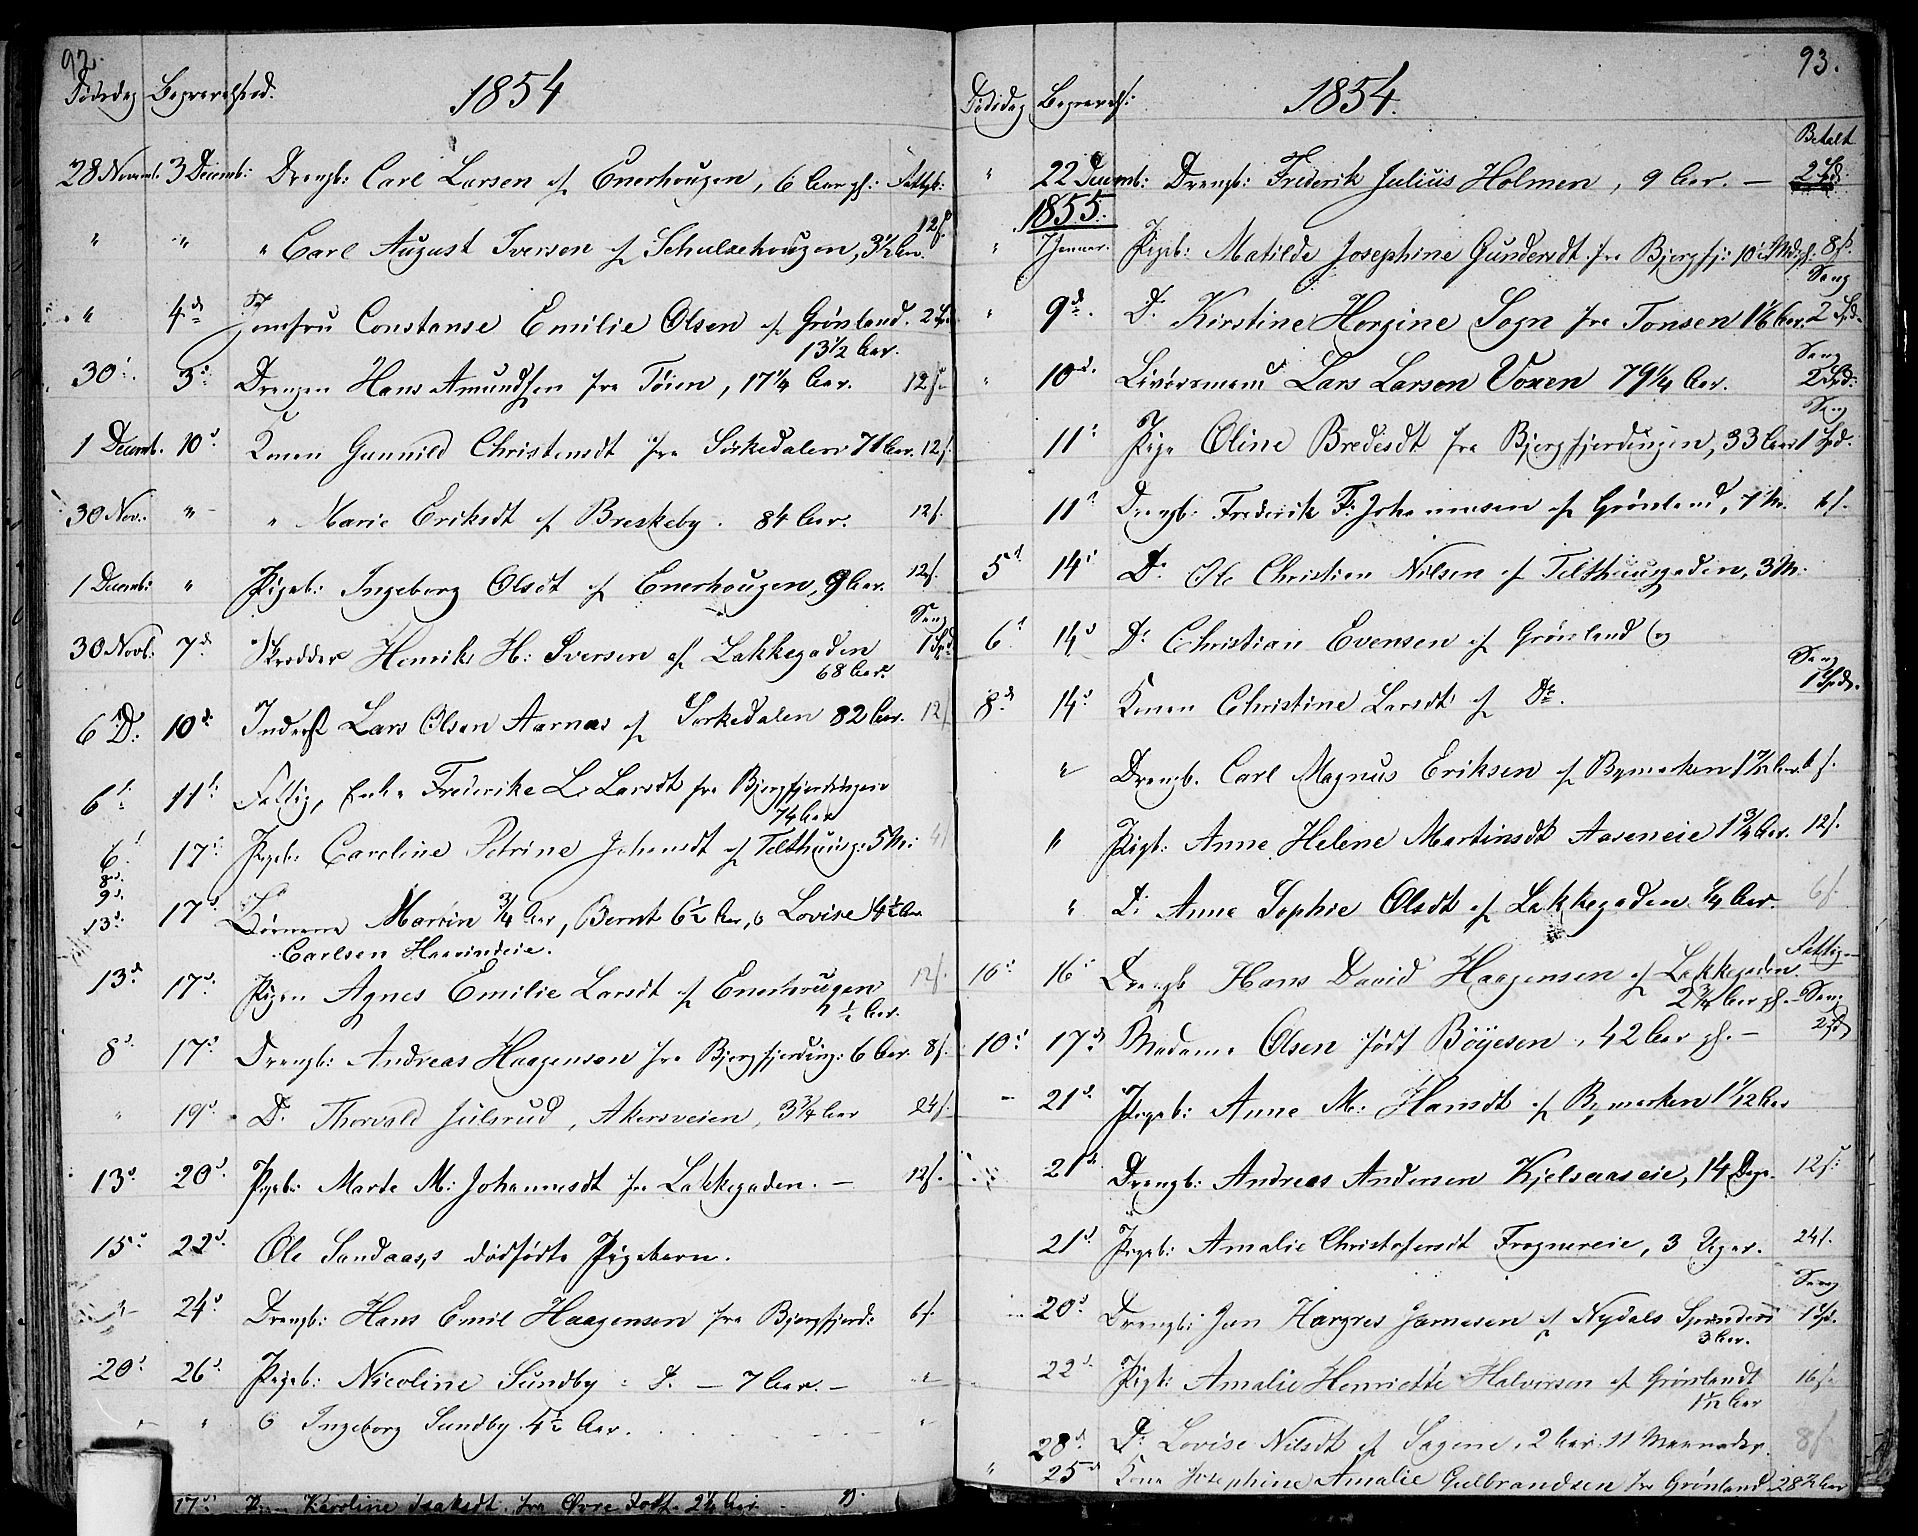 92.
Dødsdag Begravelsesd. 1854
28 Novemb. 3 Decemb: Drengb: Carl Larsen af Enerhougen, 6 Aar gl: Fattigb:
" " " Carl August Iversen af Schulzehougen, 3½ Aar. 12 s.
" 4d Jomfru Constanse Emilie Olsen af Grønland. 2 Spd
13½ Aar.
30' 3d Drengen Hans Amundsen fra Tøien, 17¼ Aar. 12 s.
1 Decemb. 10d Konen Gunnild Christensdt fra Sørkedalen 71 Aar. 12 s.
30 Nov. " " Marie Eriksdt af Breskeby. 84 Aar. 12 s.
1 Decemb: " Pigeb: Ingeborg Olsdt af Enerhougen, 9 Aar. 12 s.
Seng
30 Novb: 7d Skrædder Henrik H: Iversen af Lakkegaden 1 Spd
68 Aar.
6 D: 10d Inderst Lars Olsen Aarnas af Sørkedalen 82 Aar. 12 s
6d 11d Fattig, Enke Frederike L Larsdt fra Bjergfjerdingen
74 Aar
6d 17d Pigeb: Caroline Petrine Johansdt af Telthuusg: 5 M: 4 s
8d
9d
13d 17d Børnene Martin ¾ Aar, Bernt 6½ Aar, o Lovise 4½ Aar
Carlsen Haavindeie.
13d 17d Pigen Agnes Emilie Larsdt af Enerhougen 12 s.
½ Aar.
8d 17d Drengb: Andreas Haagensen fra Bjergfjerding: 6 Aar. 8 s.
" 19d D: Thorvald Julsrud, Akersveien, 3¾ Aar 24 s.
13d 20d Pigeb: Marte M: Johannesdt fra Lakkegaden. — 12 s.
15d 22d Ole Sandaas,s dødfødte Pigebarn.
" 24d Drengb: Hans Emil Haagensen fra Bjergfjerd: 6 s.
20d 26d Pigeb: Nicoline Sundby : d. — 7 Aar. — "
" " o Ingeborg Sundby 4½ Aar. "
17d D. — Karoline Isaksdt. fra Øvre Foss. 2¼ Aar
93.
Dødsdag Begravels: 1854.
Betalt
" 22 Decemb: Drengb: Frederik Julius Holmen, 9 Aar. — 2 Spd:
1855.
" 7 Januar. Pigeb: Matilde Josephine Gundersdt fra Bjergfj: 10 Md: gl: 8 s.
Seng
" 9d. D: Kirstine Horgine Sogn fra Tonsen 1⅙ Aar. 2 Spd.
Seng
" 10d. Livøresmand Lars Larsen Voxen 79¼ Aar. 2 Spd:
Seng
11d Pige Oline Bredesdt fra Bjergfjerdingen, 33 Aar 1 Spd.
11d Drengb: Frederik F: Johannesen af Grønland, 7 M. 6 s.
5d 14d D: Ole Christian Nilsen af Telthuusgaden, 3 M:
6d 14d D: Christian Evensen af Grønland og
Seng
8d 14d Konen Christine Larsdt af Do. 1 Spd.
" Drengb. Carl Magnus Eriksen af Bymarken 1 7/12 Aar 6 s.
" Pigeb: Anne Helene Martinsdt Aaseneie 1¾ Aar. 12 s.
" D: Anne Sophie Olsdt af Lakkegaden ¾ Aar. 6 s.
Fattig
10d 16d Drengb Hans David Haagensen af Lakkegaden.
2¾ Aar gl. — Seng
10d 17d Madame Olsen født Böyesen, 42 Aar gl. — 2 Spd
— 21d. Pigeb: Anne M: Hansdt af Bymarken 1 1/12 Aar
21d Drengb: Andreas Andersen Kjelsaaseie, 14 Dage. 12 s:
21d Pigeb: Amalie Christofersdt Frognereie, 3 Uger. 24 s.
Seng
20d Drengb: Jan Hargres Jamesen af Nydals Spinderi 1 Spd.
3 Aar.
22d Pigb: Amalie Henriette Halvorsen af Grønlandt 16 s.
1 1/12 Aar
28d D: Lovise Nilsdt af Sagene, 2 Aar 11 Maaneder 8 s.
" 25d Kone Josephine Amalie Gulbrandsen fra Grønland 28¾ Aar